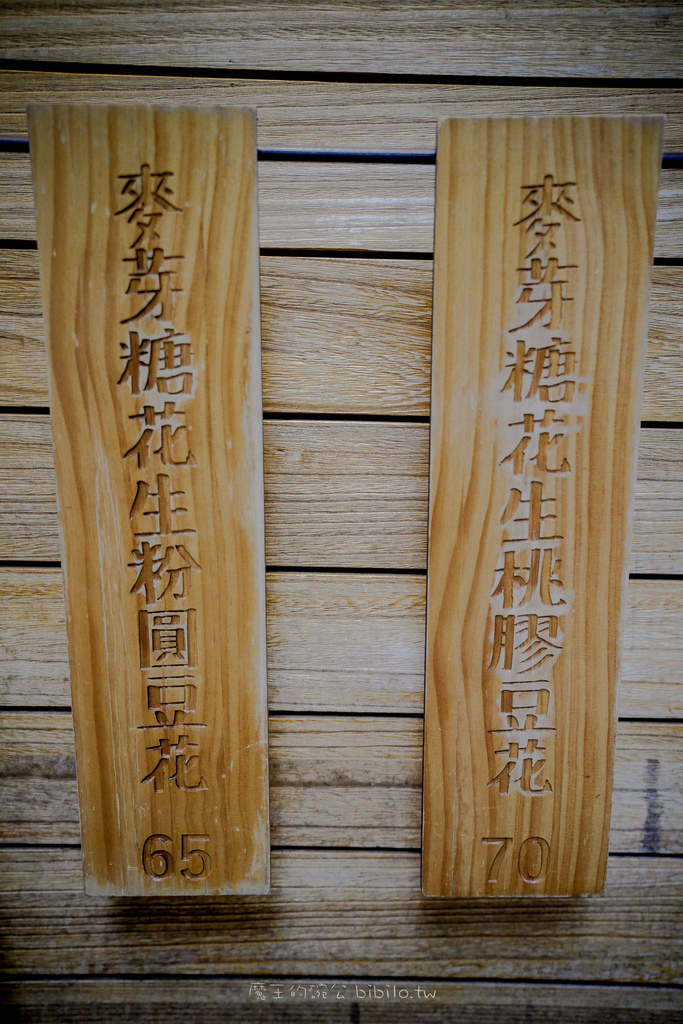 麥芽糖花生粉圓豆花
65
麥芽糖花生桃膠豆花
70
魔王的碗公 bibilo.tw